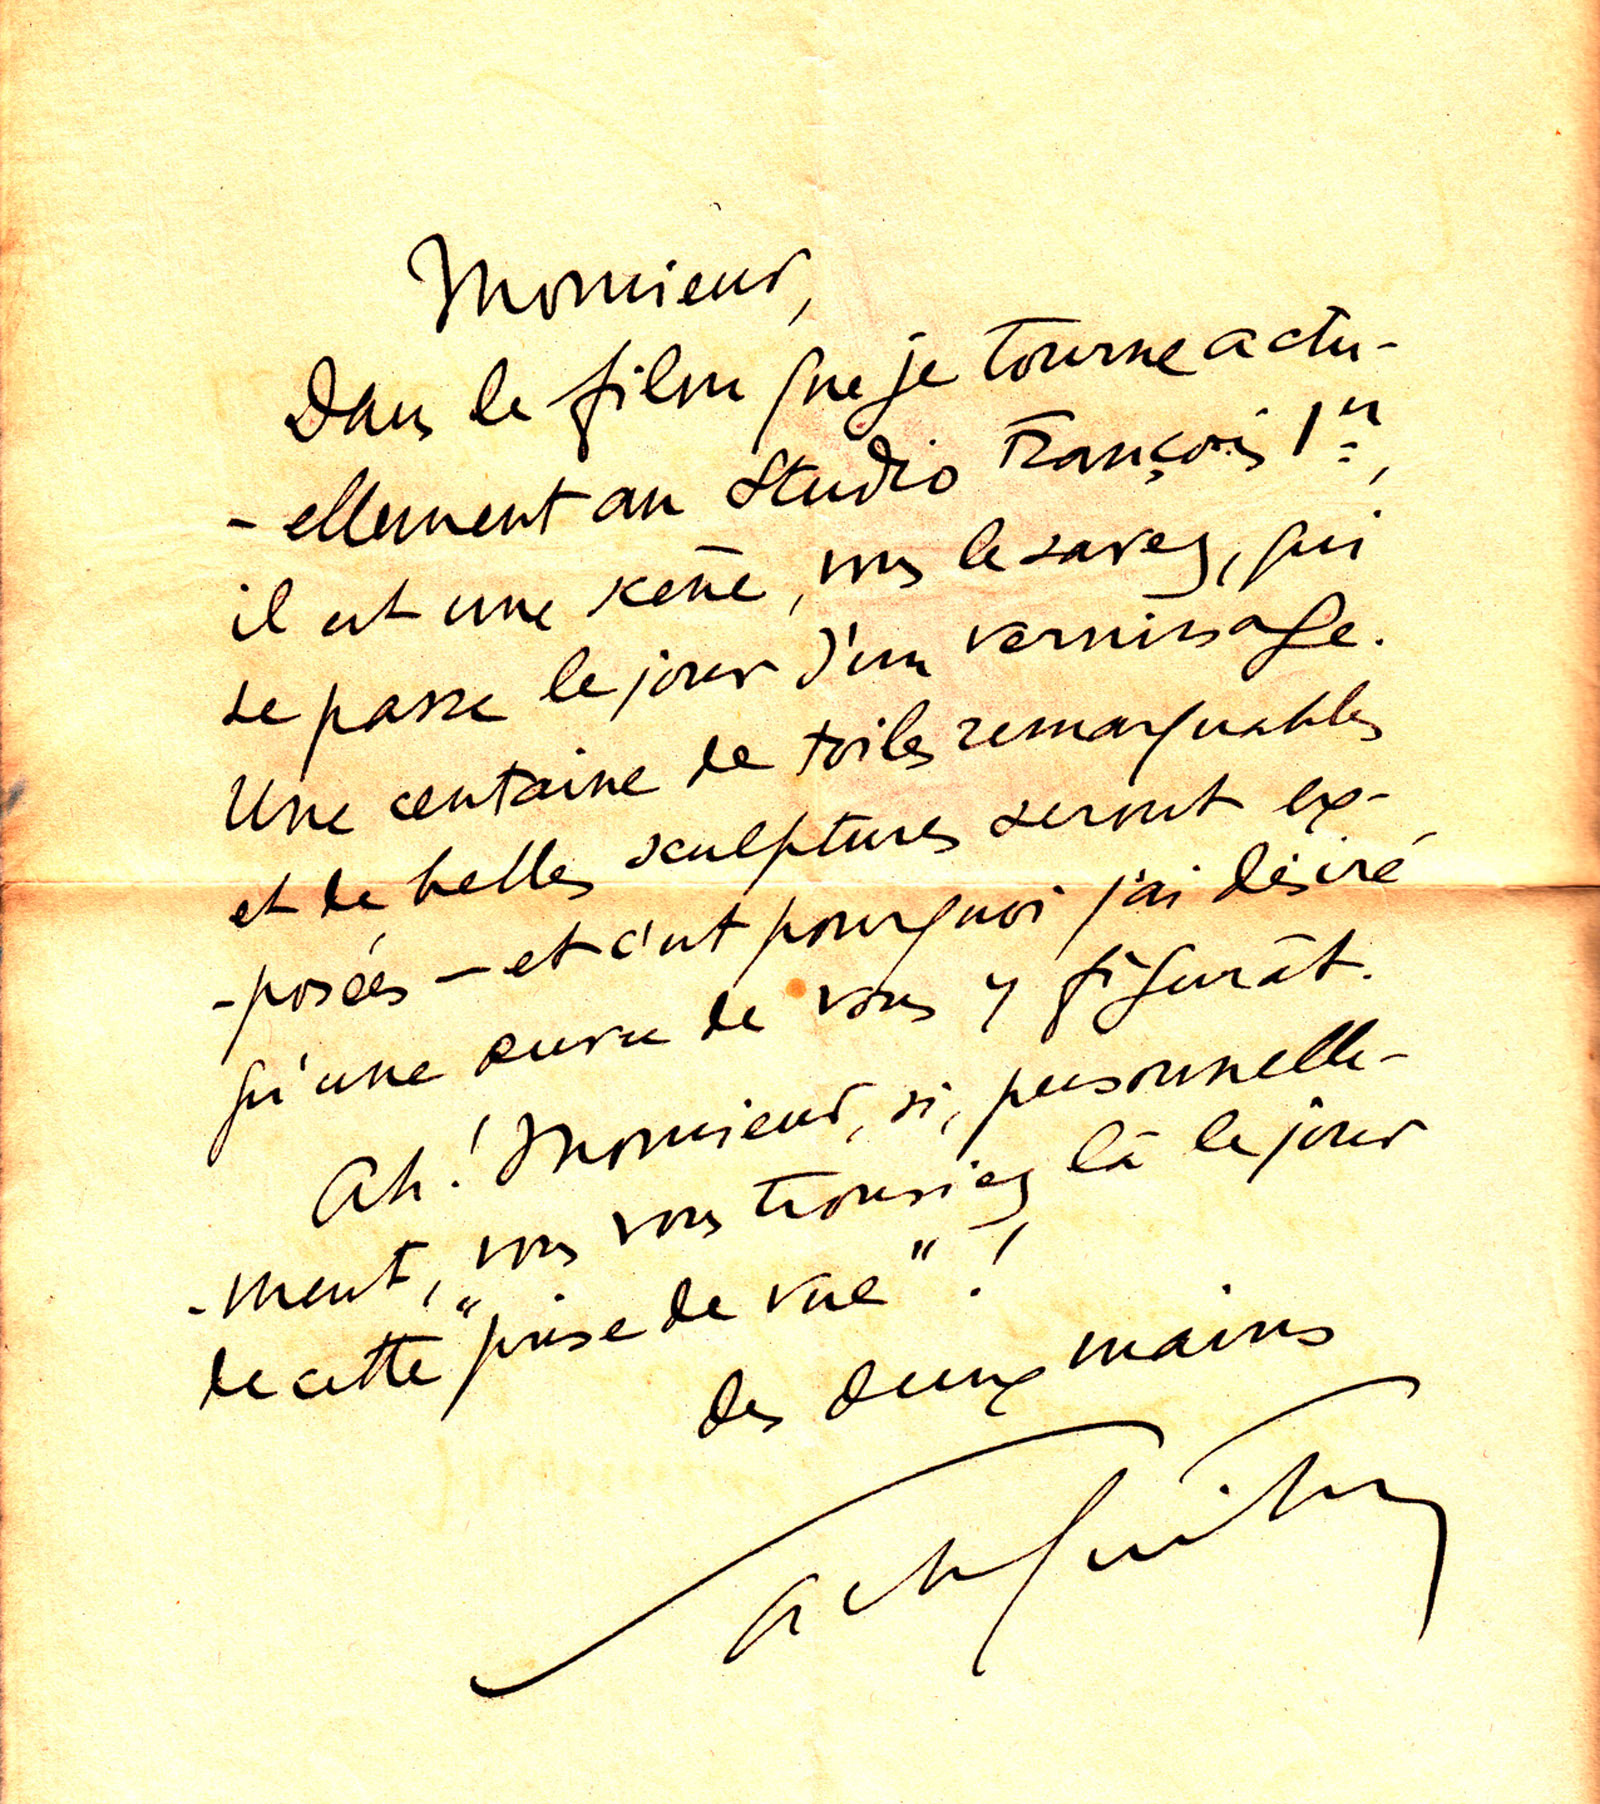 Monsieur,
Dans le film que je tourne actu-
-ellement au Studio François 1er,
il est une scène, vous le savez, qui
se passe le jour d'un vernissage.
Une centaine de toiles remarquables
et de belles sculptures seront ex-
-posées – et c'est pourquoi j'ai désiré
qu'une œuvre de vous y figurât.
Ah! Monsieur, si, personnelle-
-ment, vous vous trouviez là le jour
de cette "prise de vue"!
des deux mains
Sacha Guitry